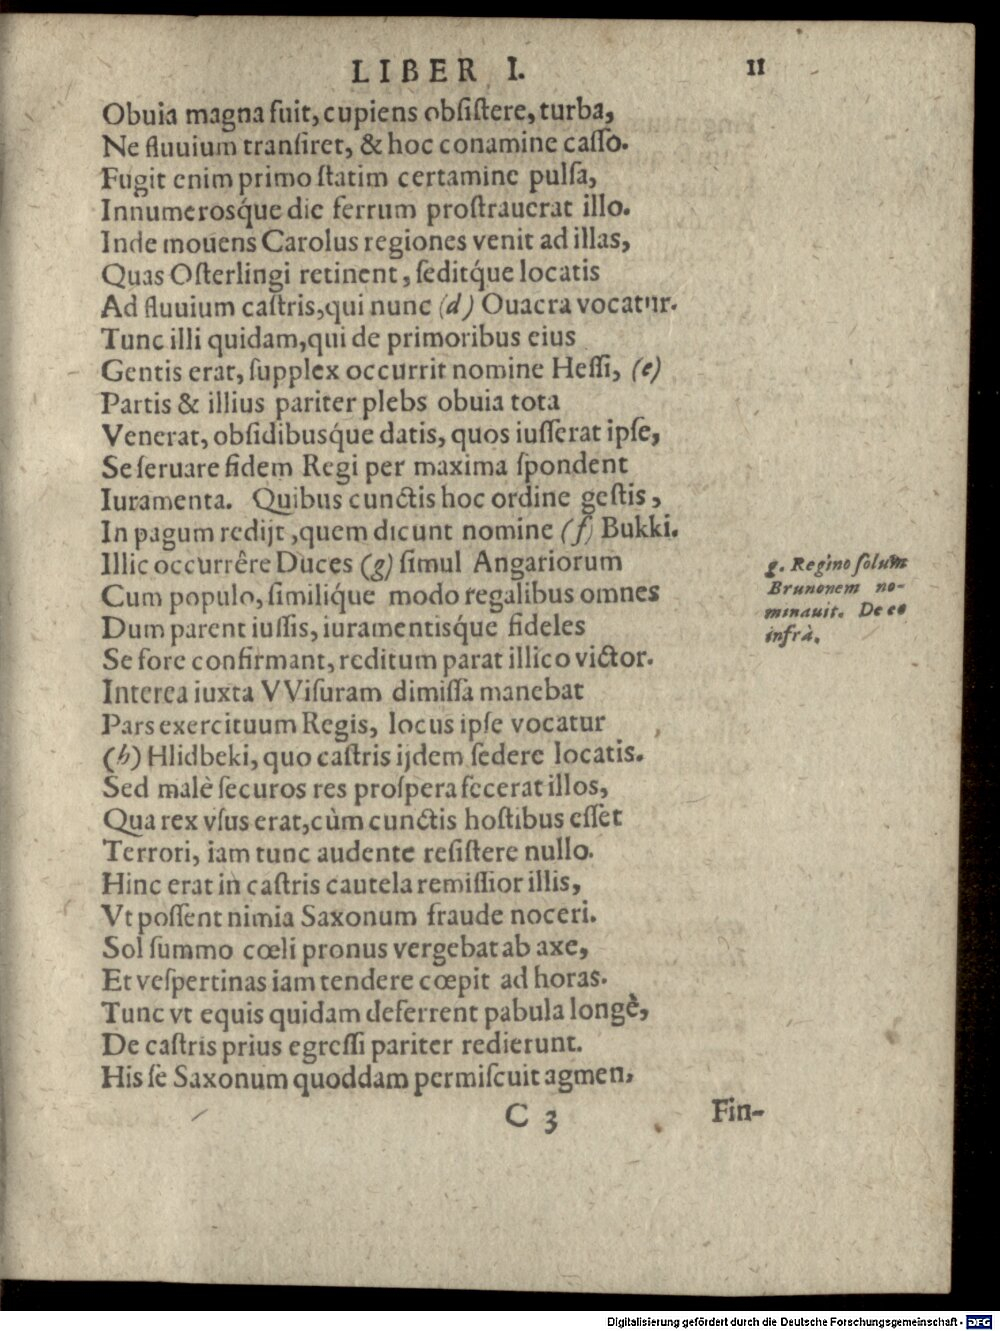 LIBER I. 11
Obuia magna fuit, cupiens obſiſtere, turba,
Ne fluuium tranſiret, & hoc conamine caſſo.
Fugit enim primo ſtatim certamine pulſa,
Innumerosq́ue die ferrum proſtrauerat illo.
Inde mouens Carolus regiones venit ad illas,
Quas Oſterlingi retinent, ſeditq́ue locatis
Ad fluuium caſtris, qui nunc (d) Ouacra vocatur.
Tunc illi quidam, qui de primoribus eius
Gentis erat, ſupplex occurrit nomine Heſſi, (e)
Partis & illius pariter plebs obuia tota
Venerat, obſidibusq́ue datis, quos iuſſerat ipſe,
Se ſeruare fidem Regi per maxima ſpondent
Iuramenta. Quibus cunctis hoc ordine geſtis,
In pagum redijt, quem dicunt nomine (f) Bukki.
Illic occurrêre Duces (g) ſimul Angariorum
Cum populo, ſimiliq́ue modo regalibus omnes
Dum parent iuſſis, iuramentisq́ue fideles
Se fore confirmant, reditum parat illico victor.
Interea iuxta VViſuram dimiſſa manebat
Pars exercituum Regis, locus ipſe vocatur
(h) Hlidbeki, quo caſtris ijdem ſedere locatis.
Sed malè ſecuros res proſpera fecerat illos,
Qua rex vſus erat, cùm cunctis hoſtibus eſſet
Terrori, iam tunc audente reſiſtere nullo.
Hinc erat in caſtris cautela remiſſior illis,
Vt poſſent nimia Saxonum fraude noceri.
Sol ſummo cœli pronus vergebat ab axe,
Et veſpertinas iam tendere cœpit ad horas.
Tunc vt equis quidam deferrent pabula longè,
De caſtris prius egreſſi pariter redierunt.
His ſe Saxonum quoddam permiſcuit agmen,
C 3 Fin-
g. Regino ſolum
Brunonem no-
minauit. De eo
infrà.
Digitalisierung gefördert durch die Deutsche Forschungsgemeinschaft - DFG